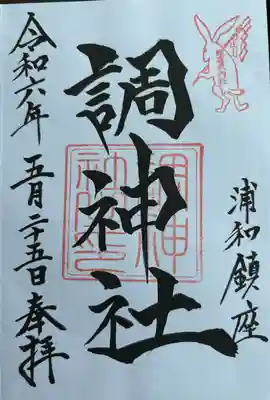 浦和鎮座
調神社
令和六年 五月二十五日 奉拝